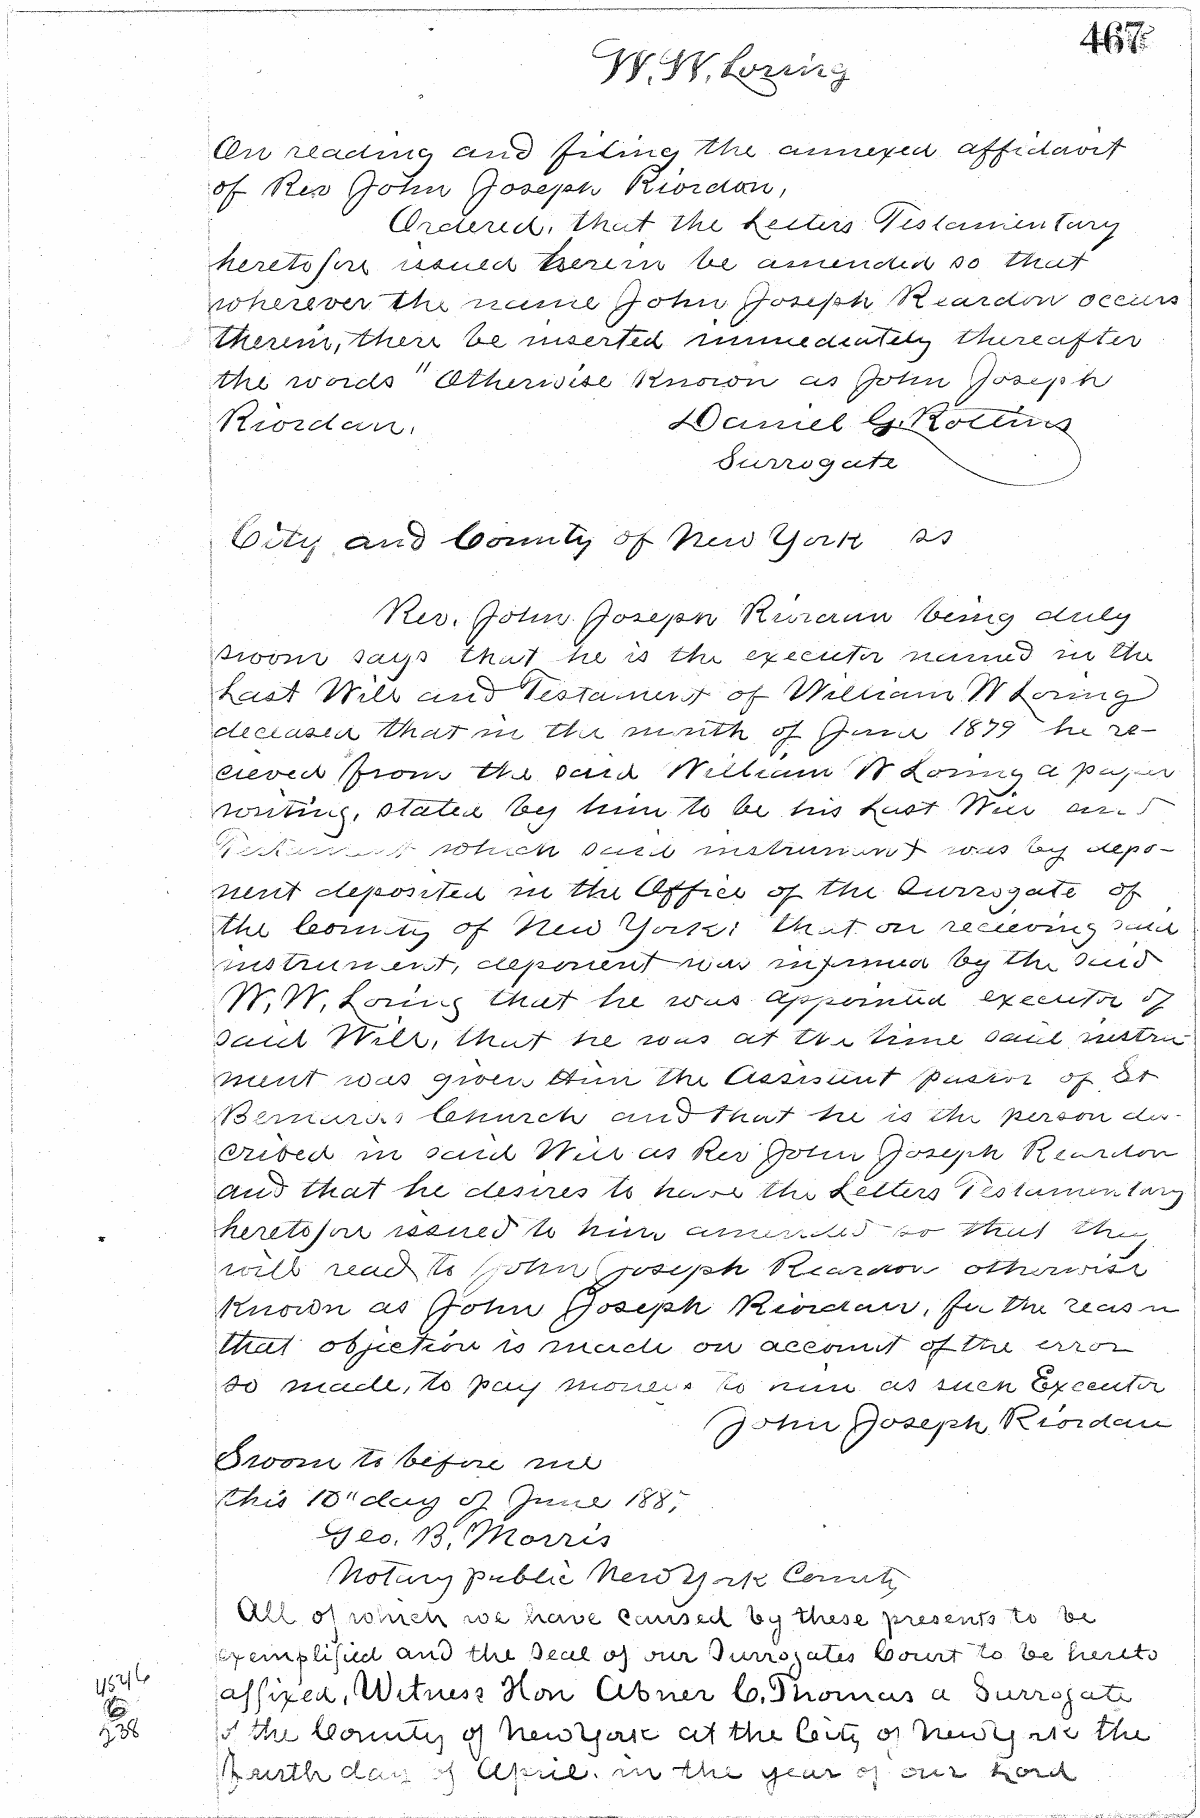 467
W. W. Loring
On reading and filing the annexed affidavit
of Rev John Joseph Riordon,
Ordered, that the Letters Testamentary
heretofore issued herein be amended so that
wherever the name John Joseph Reardon occurs
therein, there be inserted immediately thereafter
the words "Otherwise Known as John Joseph
Riordan.
Daniel G. Rollins
Surrogate
City and County of New York ss
Rev. John Joseph Riordan being duly
sworn says that he is the executor named in the
Last Will and Testament of William W Loring
deceased that in the month of June 1879 he re-
cieved from the said William W Loring a paper
writing, stated by him to be his Last Will and
Testament which said instrument was by depo-
nent deposited in the Office of the Surrogate of
the County of New York; that on recieving said
instrument, deponent was informed by the said
W. W. Loring that he was appointed executor of
said Will, that he was at the time said instru-
ment was given Him the Assistent pastor of St
Bernards Church and that he is the person des-
cribed in said Will as Rev John Joseph Reardon
and that he desires to have the Letters Testamentary
heretofore issued to him amended so that they
will read to John Joseph Reardon otherwise
Known as John Joseph Riordan, for the reason
that objection is made on account of the error
so made, to pay moneys to him as such Executor
John Joseph Riordan
Sworn to before me
this 10" day of June 1887
Geo. B. Morris
Notary public New York County
All of which we have caused by these presents to be
exemplified and the Seal of our Surrogates Court to be hereto
affixed, Witness Hon Abner C. Thomas a Surrogate
of the County of New York at the City of New York the
fourth day of April. in the year of our Lord
4546
6
238